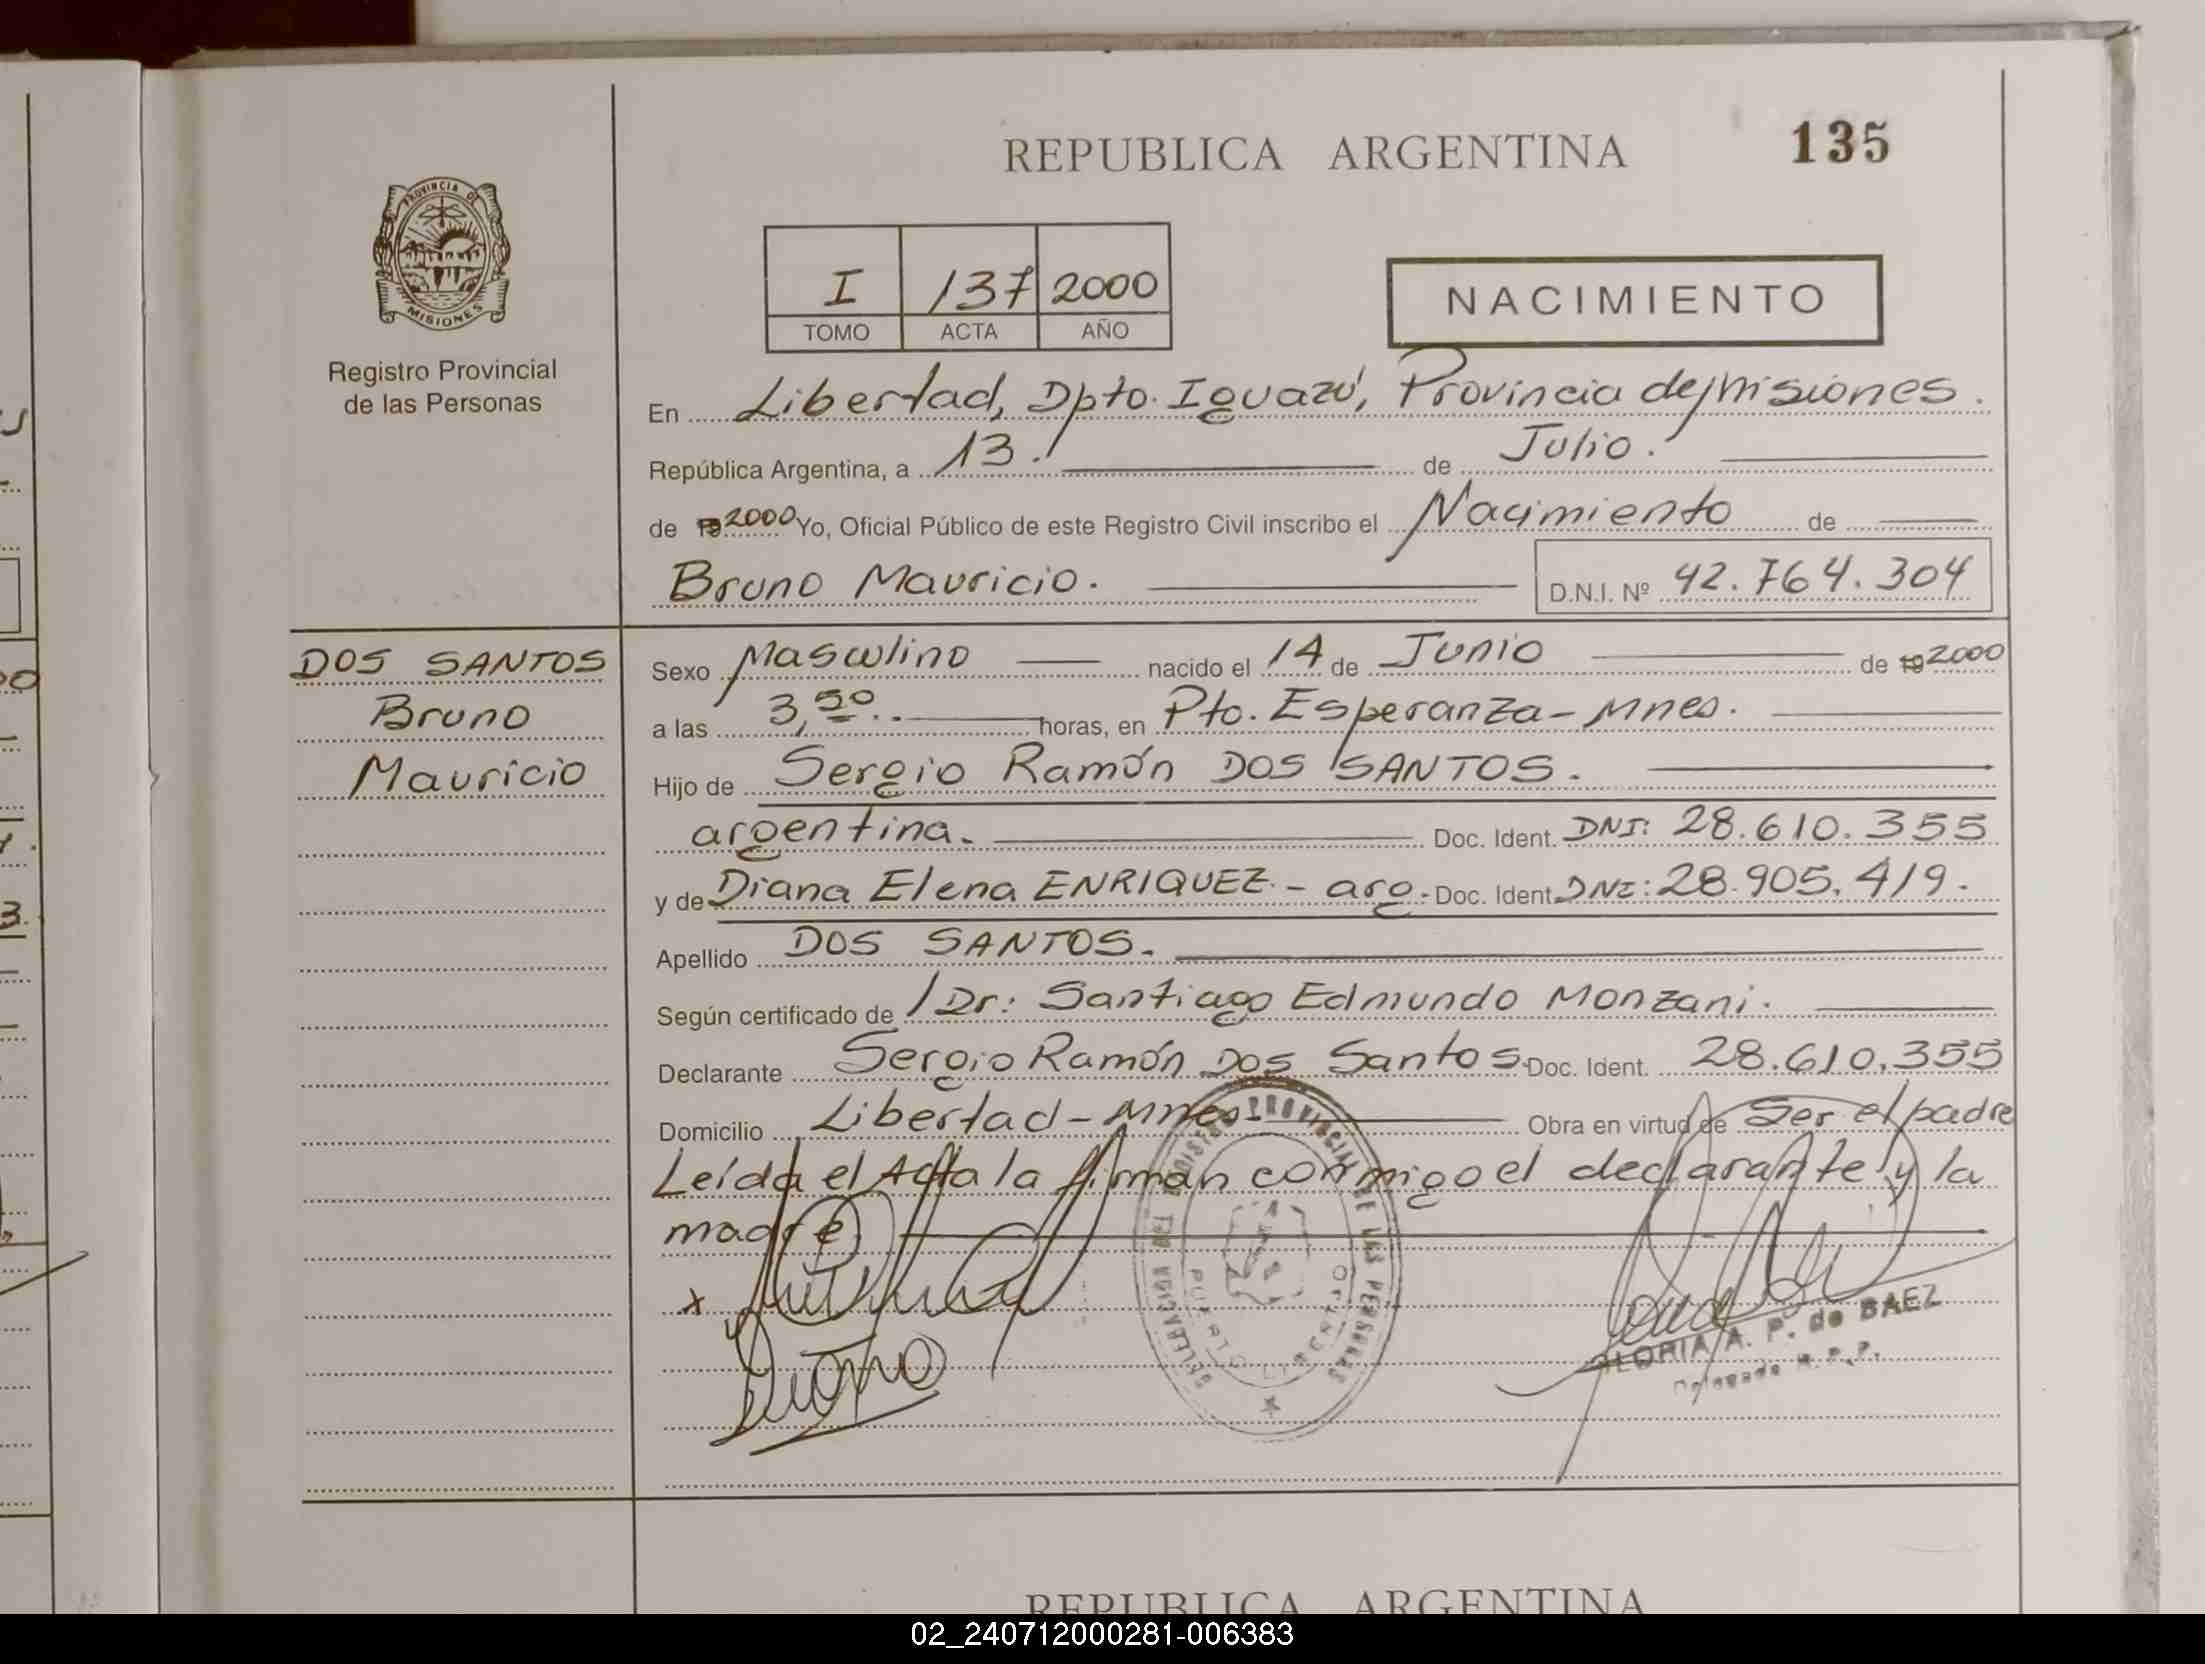 REPUBLICA ARGENTINA
135
PROVINCIA DE
MISIONES
Registro Provincial
de las Personas
I 137 2000
TOMO ACTA AÑO
NACIMIENTO
En Libertad, Dpto. Iguazú, Provincia de Misiones.
República Argentina, a 13. de Julio.
de 19 2000 Yo, Oficial Público de este Registro Civil inscribo el Nacimiento de
Bruno Mauricio. D.N.I. Nº 42.764.304
DOS SANTOS
Bruno
Mauricio
Sexo Masculino nacido el 14 de Junio de 19 2000
a las 3,50.. horas, en Pto. Esperanza - Mnes.
Hijo de Sergio Ramón DOS SANTOS.
argentina. Doc. Ident. DNI: 28.610.355
y de Diana Elena ENRIQUEZ. - arg. Doc. Ident. DNI: 28.905.419.
Apellido DOS SANTOS.
Según certificado de Dr: Santiago Edmundo Monzani.
Declarante Sergio Ramón Dos Santos. Doc. Ident. 28.610.355
Domicilio Libertad - Mnes - Obra en virtud de Ser el padre
Leída el Acta la firman conmigo el declarante y la
madre
x
Diana
DELEGACION DEL REGISTRO PROVINCIAL DE LAS PERSONAS
PUERTO LIBERTAD
GLORIA A. P. de BAEZ
Delegada R.P.P.
REPUBLICA ARGENTINA
02_240712000281-006383